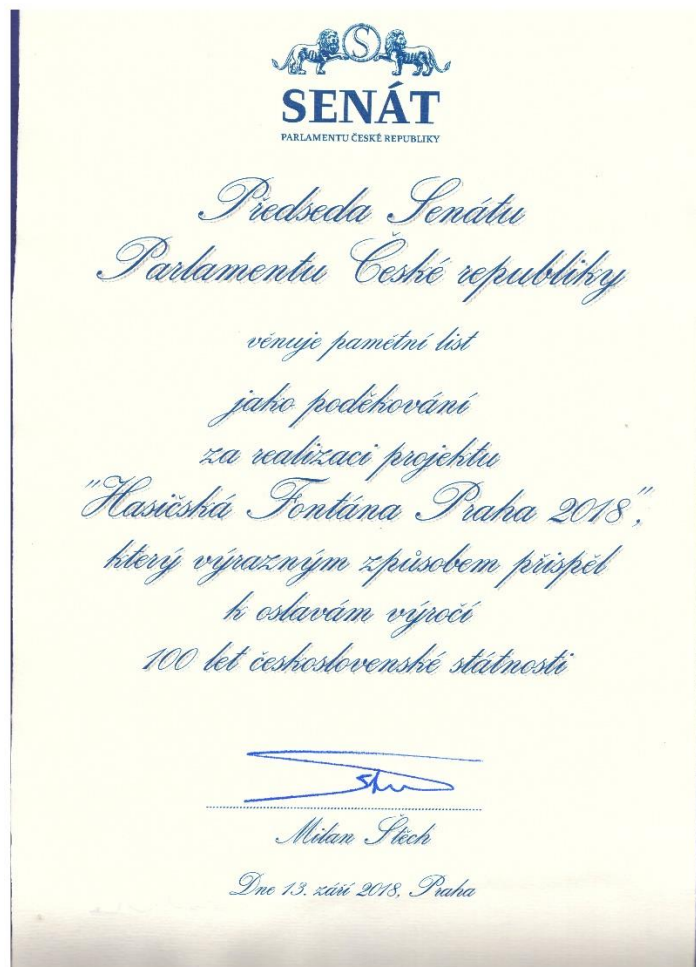 S
SENÁT
PARLAMENTU ČESKÉ REPUBLIKY
Předseda Senátu
Parlamentu České republiky
věnuje pamětní list
jako poděkování
za realizaci projektu
"Hasičská Fontána Praha 2018",
který výrazným způsobem přispěl
k oslavám výročí
100 let československé státnosti
Milan Štěch
Dne 13. září 2018, Praha